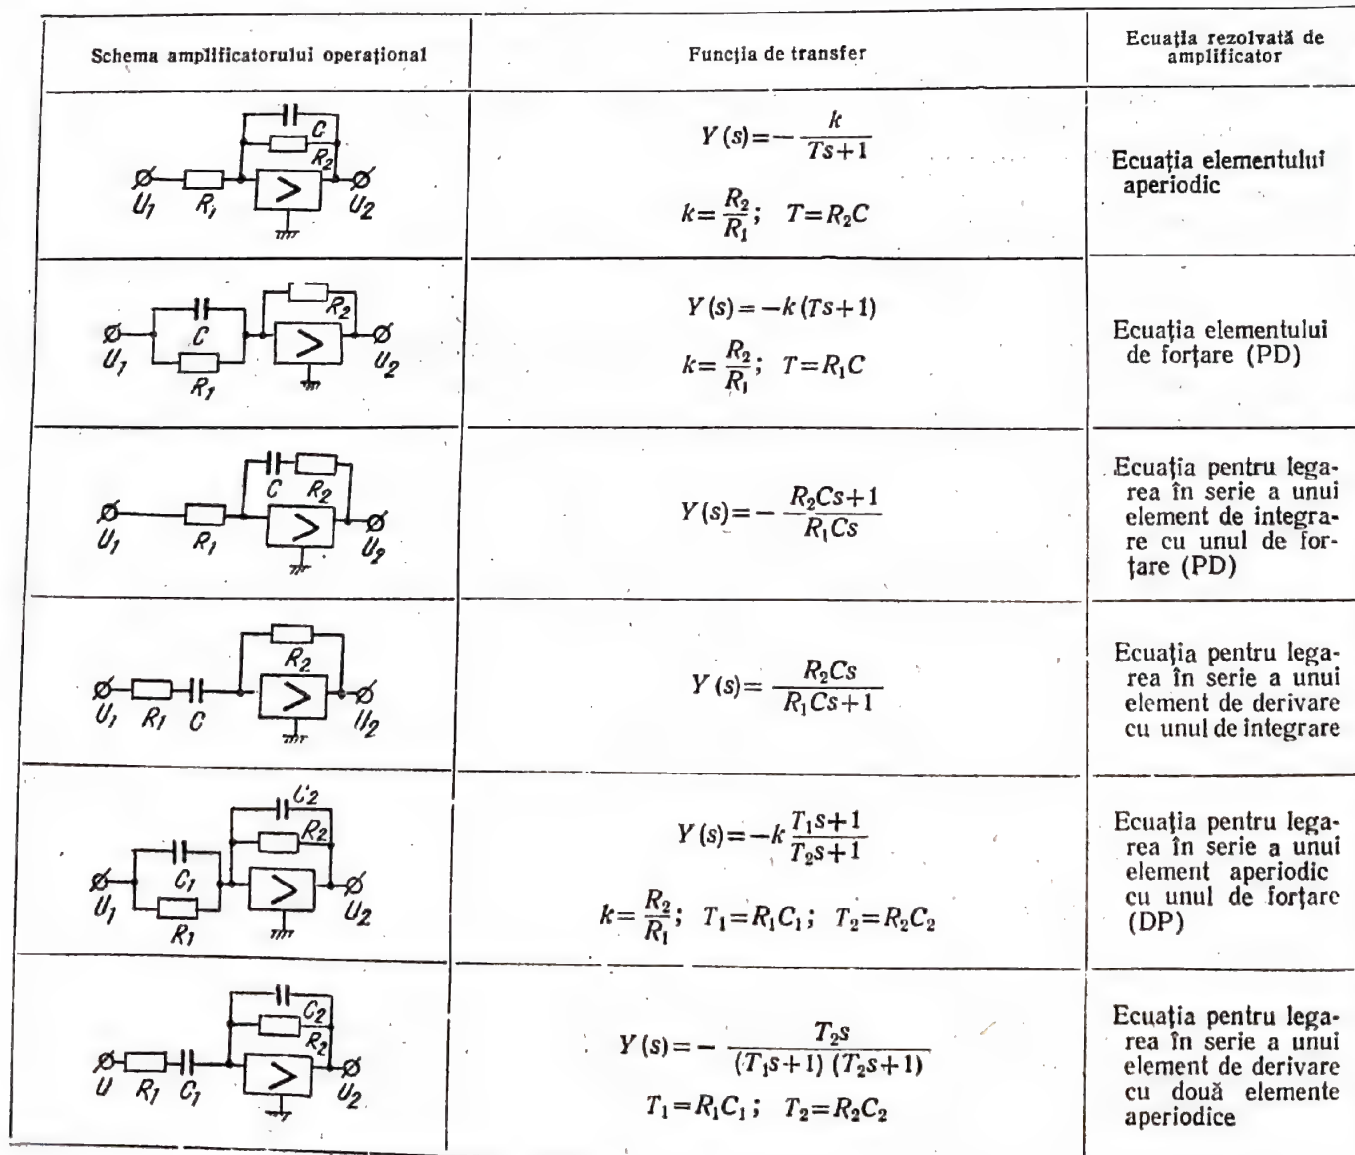 Schema amplificatorului operațional
Funcția de transfer
Ecuația rezolvată de
amplificator
C
R₂
U₁
R₁
>
U₂
Y (s)=− k/(Ts+1)
k= R₂/R₁; T=R₂C
Ecuația elementului
aperiodic
R₂
C
U₁
R₁
>
U₂
Y (s)= −k (Ts+1)
k= R₂/R₁; T=R₁C
Ecuația elementului
de forțare (PD)
C R₂
U₁
R₁
>
U₂
Y (s)=− (R₂Cs+1)/(R₁Cs)
Ecuația pentru lega-
rea în serie a unui
element de integra-
re cu unul de for-
țare (PD)
R₂
U₁ R₁ C
>
U₂
Y (s)= R₂Cs/(R₁Cs+1)
Ecuația pentru lega-
rea în serie a unui
element de derivare
cu unul de integrare
C₂
R₂
C₁
U₁
R₁
>
U₂
Y (s)=−k (T₁s+1)/(T₂s+1)
k= R₂/R₁; T₁=R₁C₁; T₂=R₂C₂
Ecuația pentru lega-
rea în serie a unui
element aperiodic
cu unul de forțare
(DP)
C₂
R₂
U R₁ C₁
>
U₂
Y (s)=− T₂s/((T₁s+1) (T₂s+1))
T₁=R₁C₁; T₂=R₂C₂
Ecuația pentru lega-
rea în serie a unui
element de derivare
cu două elemente
aperiodice